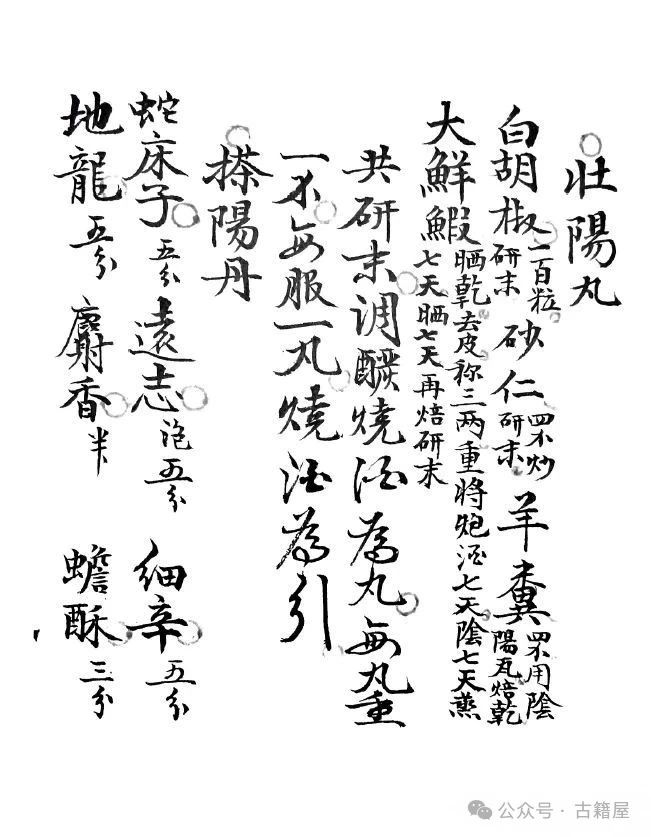 壯陽丸
白胡椒二百粒研末 砂仁四錢炒研末 羊糞四錢用陰陽瓦焙乾
大鮮蝦晒乾去皮称三两重將炮酒七天陰七天蒸七天晒七天再焙研末
共研末调燒酒為丸每丸重
一錢每服一丸燒酒為引
搽陽丹
蛇床子五分 遠志泡五分 細辛五分
地龍五分 麝香半 蟾酥三分
公众号·古籍屋